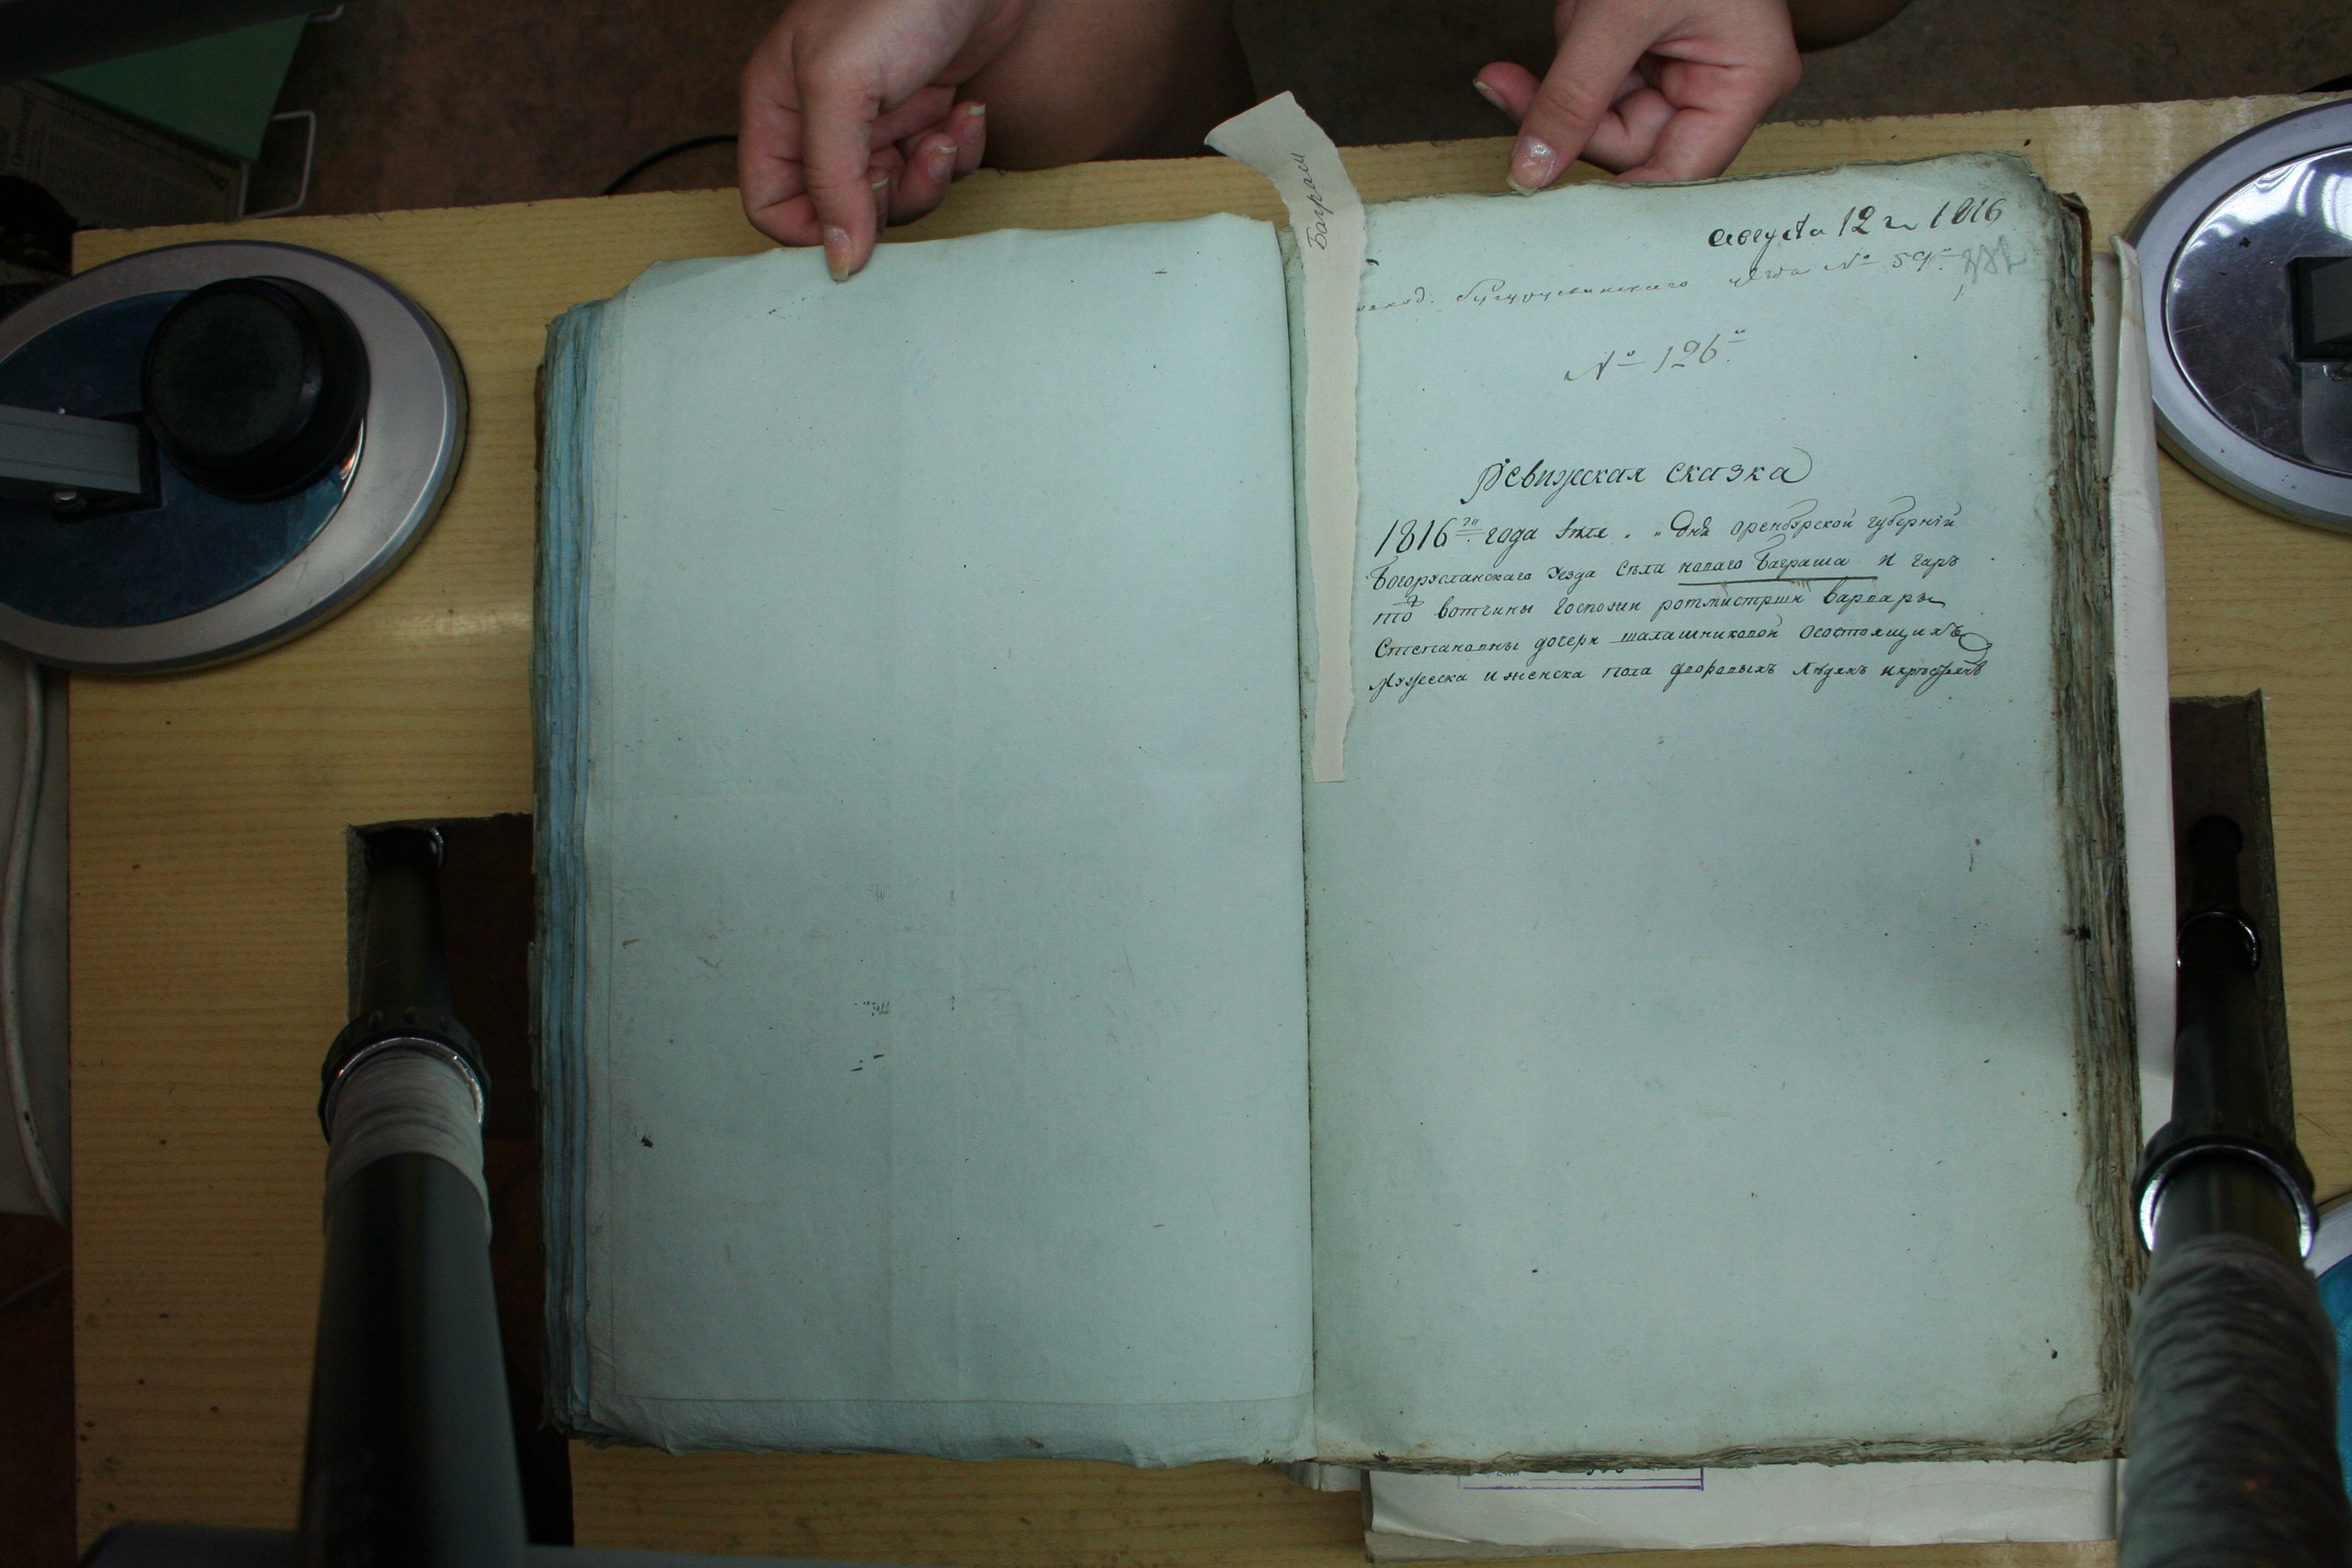 Баграш
августа 12 г 1816
Бугурусланскаго уезда № 59.
№ 126.
Ревижская сказка
1816го года дня Оренбурской губернiи
Богорусланскаго уезда Села новаго Баграша И
вотчины Госпожи ротмистрши Варвары
Степановны дочери шалашниковой Осостоящихъ
мужеска и женска пола дворовыхъ людехъ